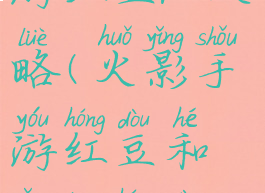 lüè huǒ yǐng shǒu
略(火影手
yóu hóng dòu hé
游红豆和